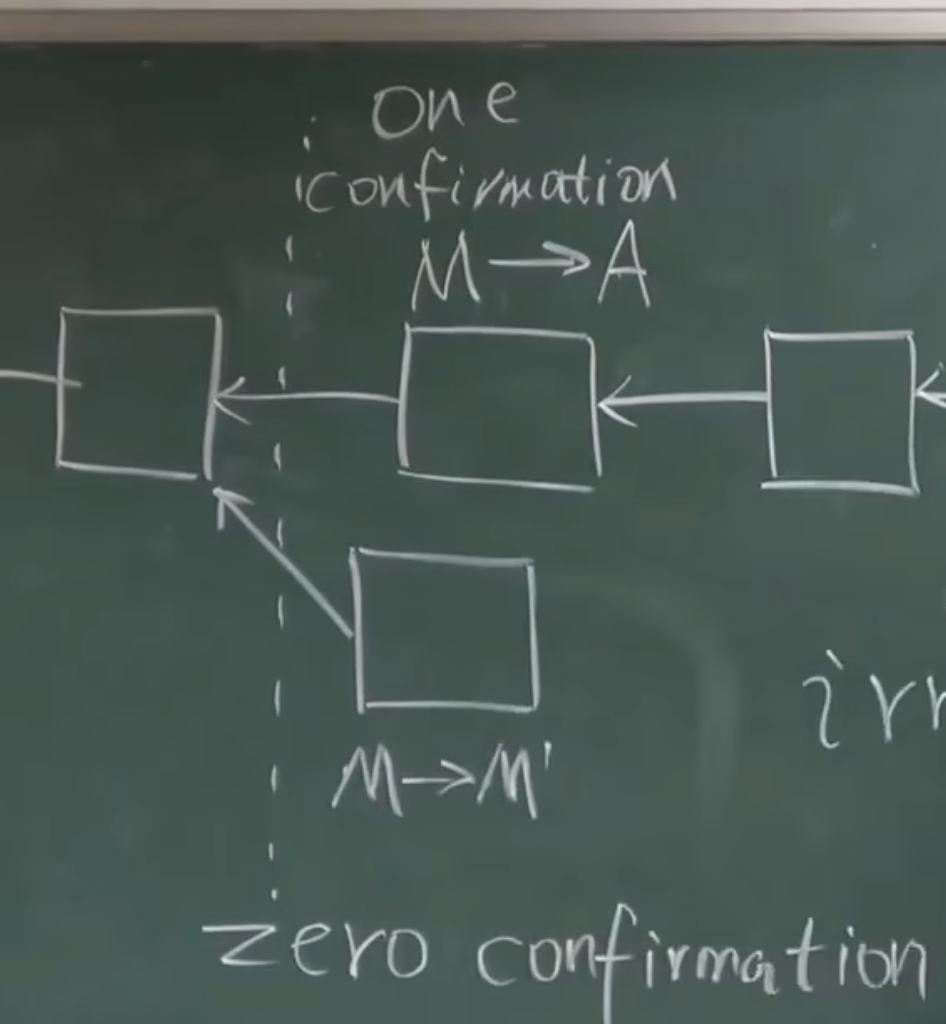 one
confirmation
M → A
irr
M → M'
zero confirmation